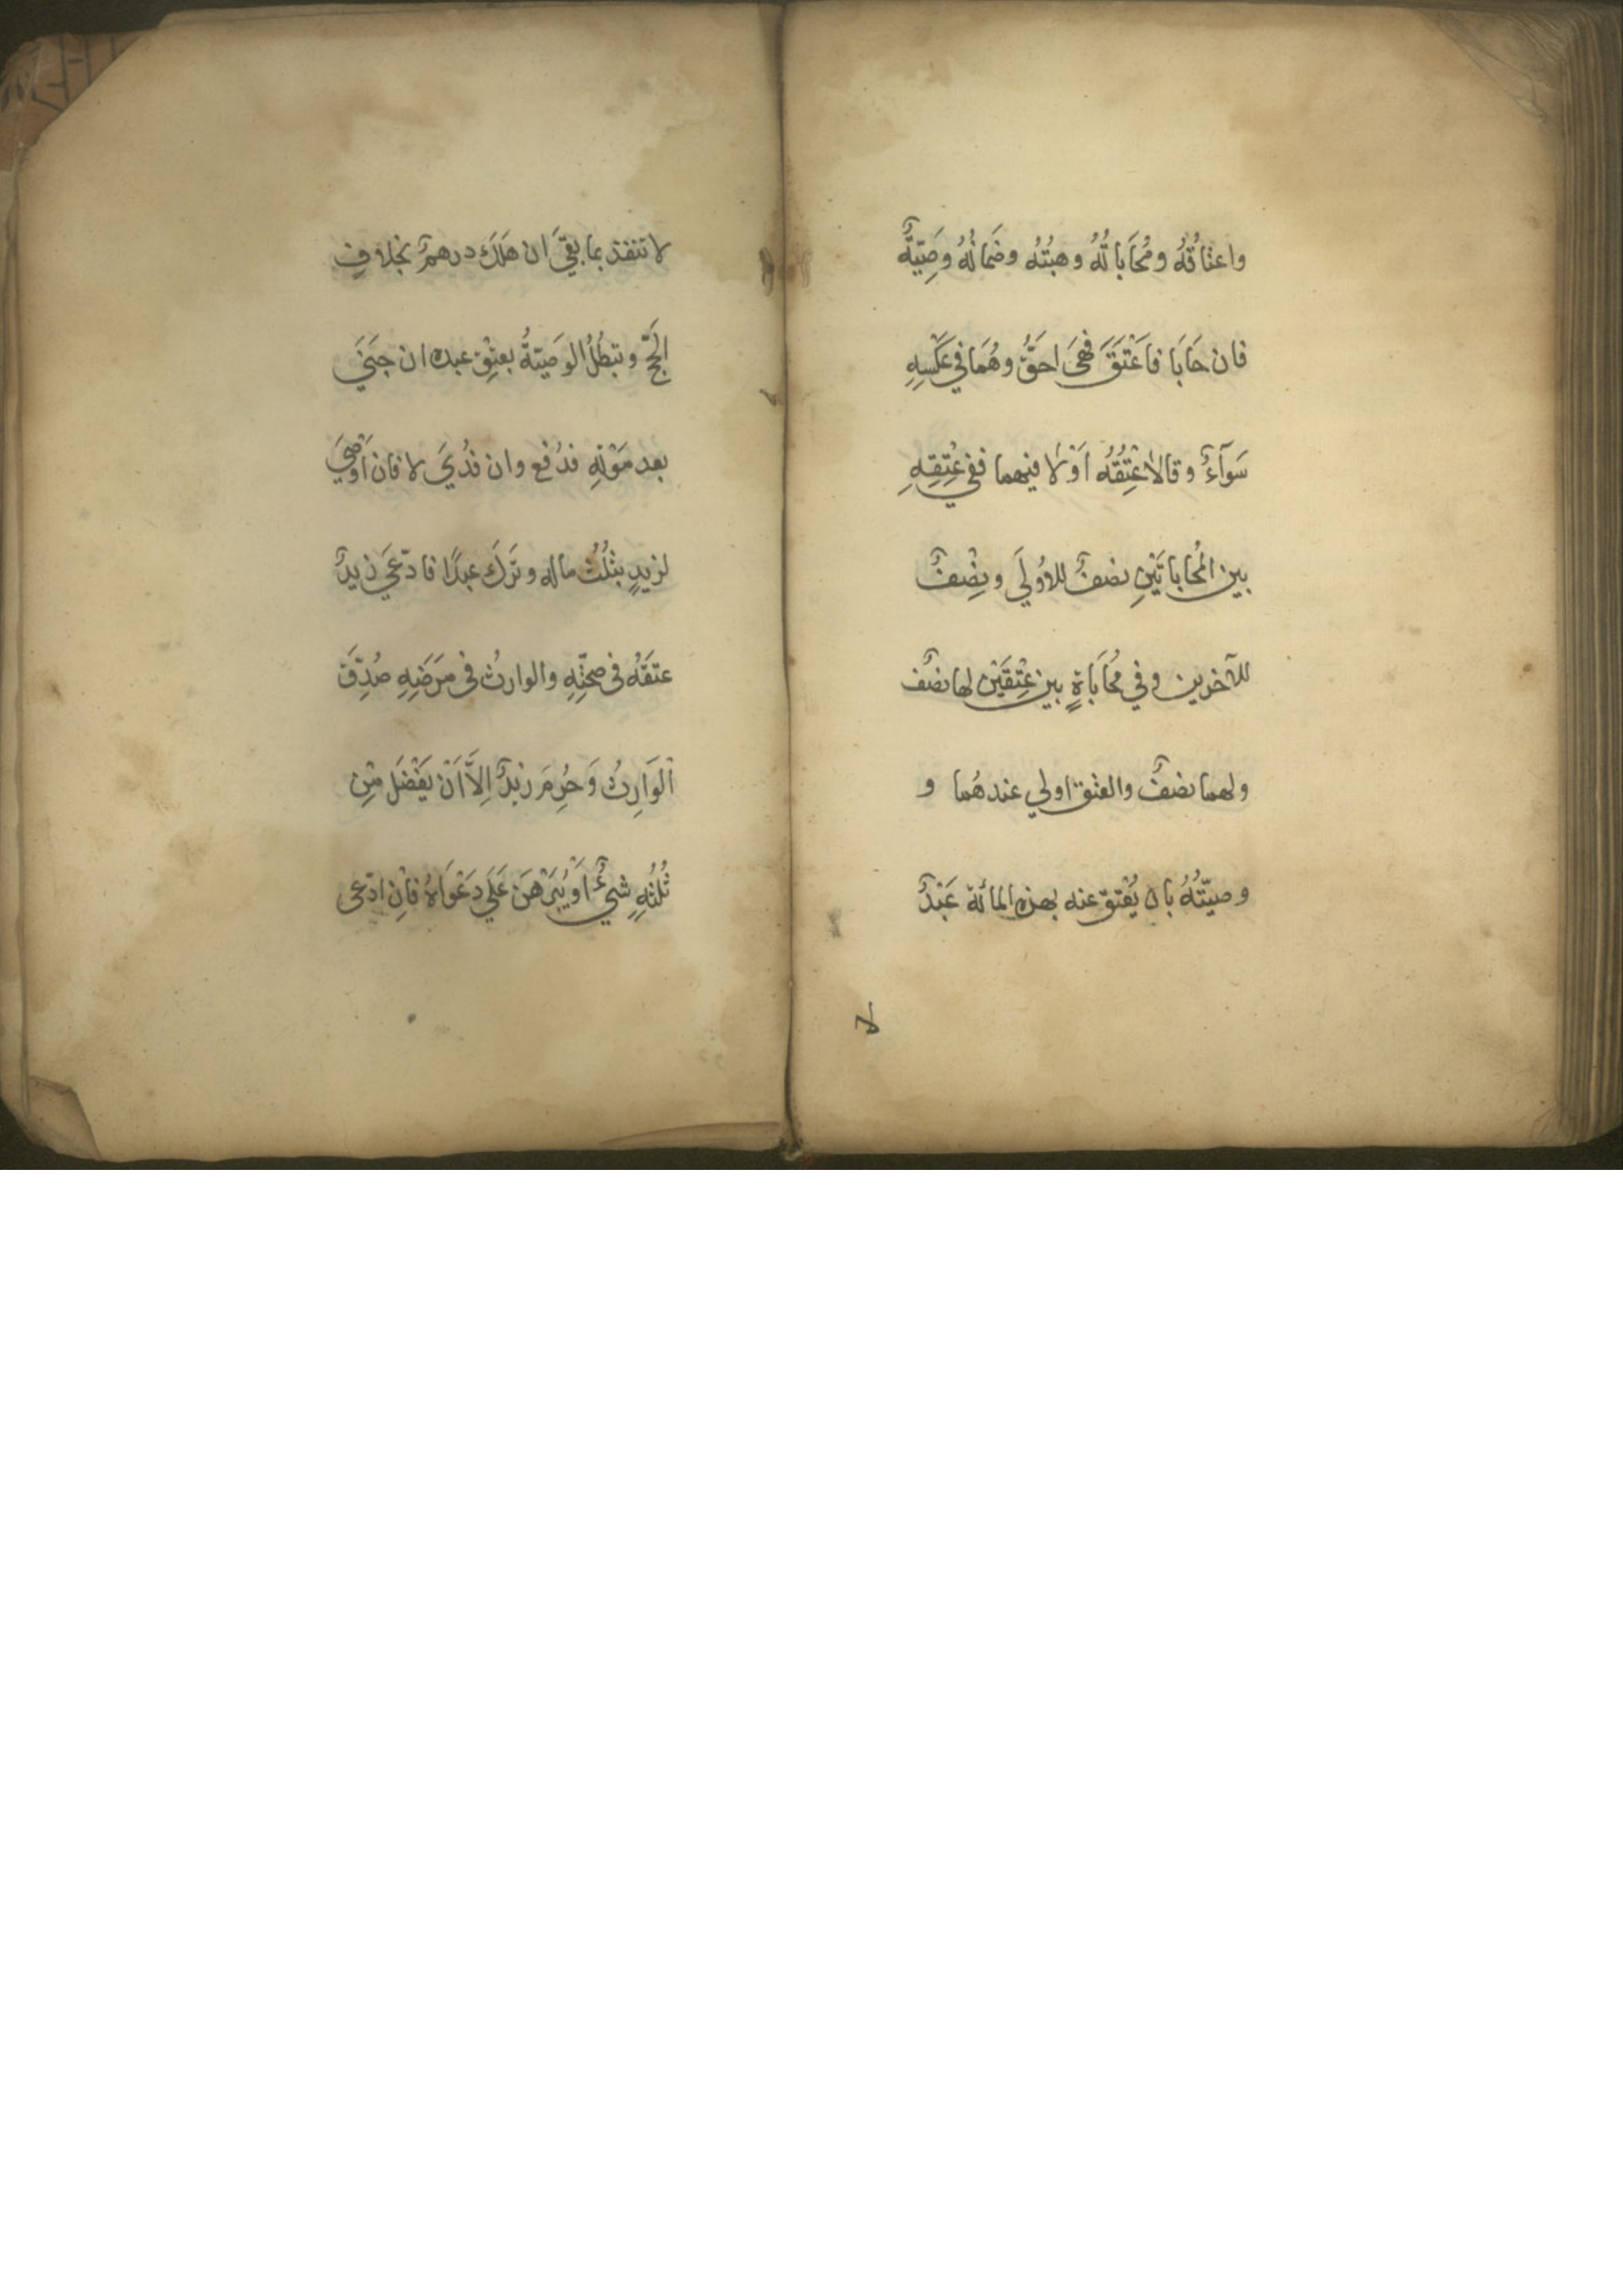 واعتاقُهُ ومُحَاباتُهُ وهبُتُه وضَمانُهُ وصِيّةٌ
فان حَابَا فاَعْتَقَ فَهِىَ احَقُّ وهُمَا في عَكْسِهِ
سَوَآءٌ وقالا عْتِقُهُ اَوْلا فيهما ففي عْتِقِهِ
بين المُحاباتَيْنِ نصفٌ للاُولَي ونِصْفٌ
للآخرين وفي مُحَابَاةٍ بين عْتِقَيْن لها نصفٌ
ولهما نصفٌ والعتق اولي عندهُما و
وصيّتُهُ بان يُعْتق عنه بهذه المائة عَبْدٌ
لا
لا تنفذ بما بقِيَ ان هَلَكَ درهمٌ بخلافِ
الحَجّ وتبطُلُ الوَصيّةُ بعِتْقِ عبده ان جَنَيَ
بعد مَوْتِهِ فدُفع وان فُدُيَ لا فان اَوْصَيَ
لزيدٍ بثُلُثِ ماله وتَرَكَ عبدًا فادّعَيَ زيدٌ
عتقَهُ في صحّتِهِ والوارثُ في مَرَضِهِ صُدِّقَ
اَلْوَارِثُ وَحُرِمَ زيدٌ اِلاَّ اَنْ يَفْضَل مْنِ
ثُلُثِهِ شيْءٌ اَوْ يُبَرْهَن عَلَي دَعْوَاهُ فاْنِ ادّعى